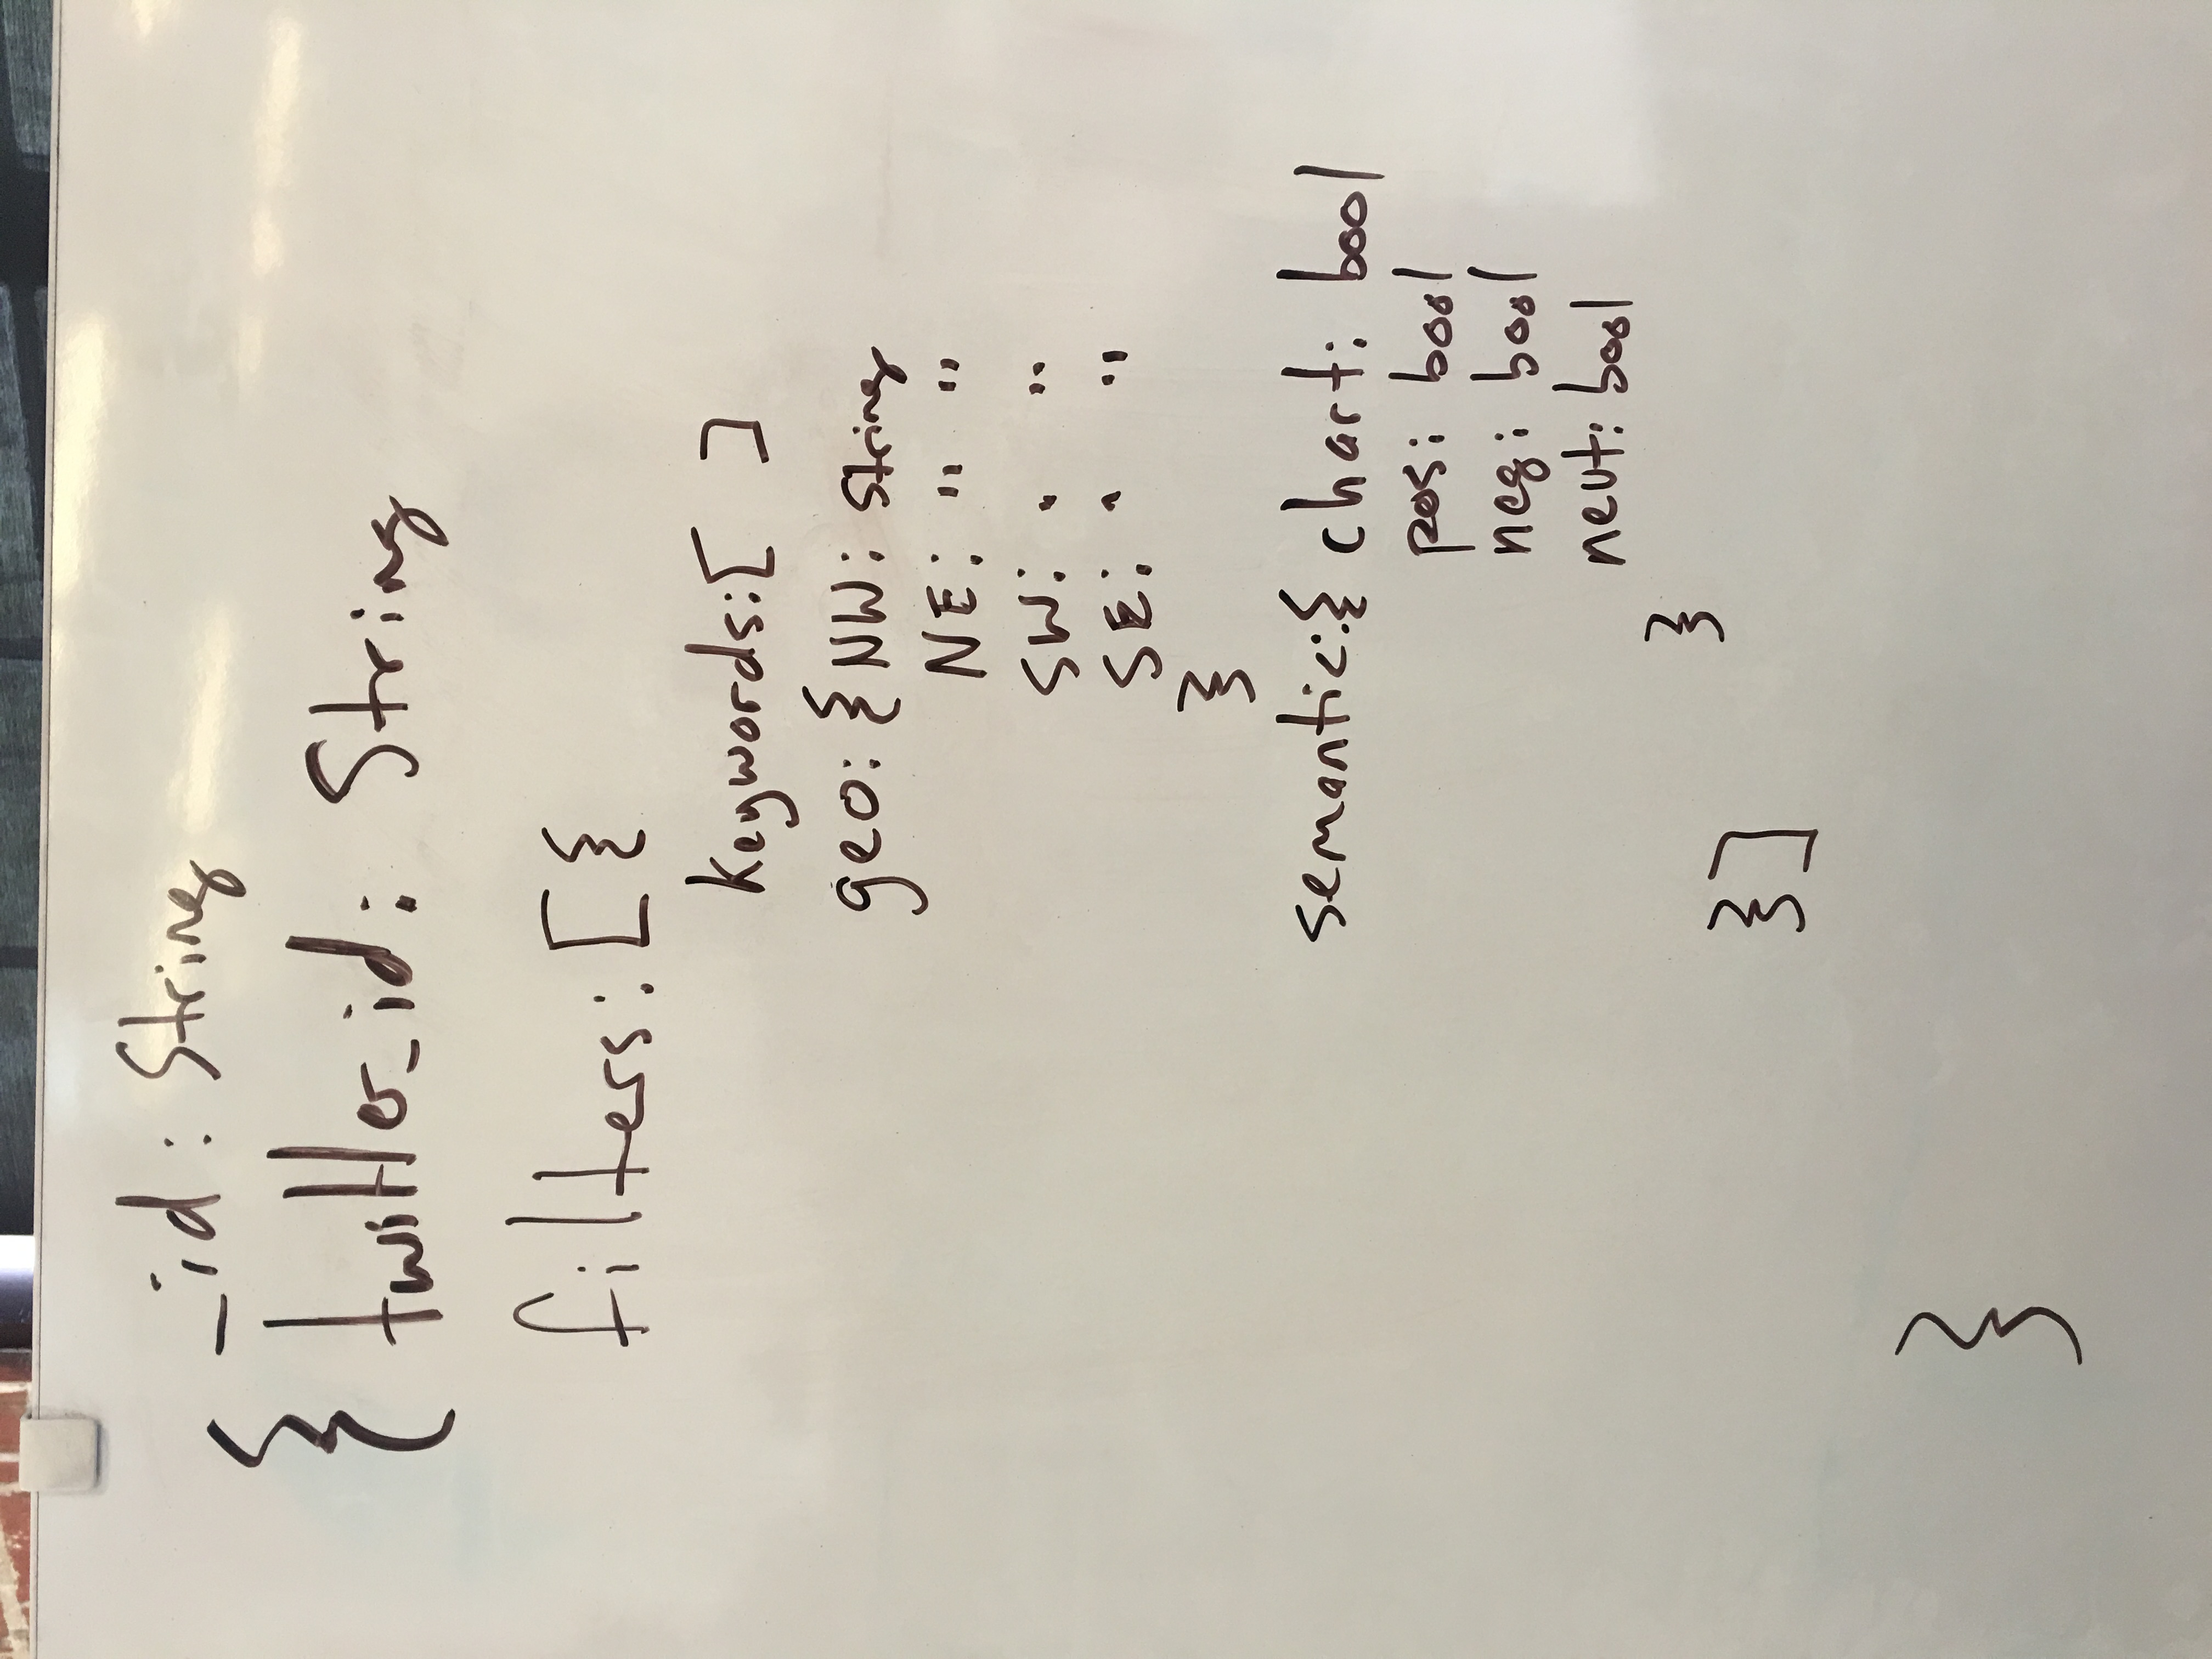 _id: String
{ twitter_id: String
filters: [{
keywords: [ ]
geo: { NW: String
NE: " "
SW: " "
SE: " "
}
semantic: { chart: bool
pos: bool
neg: bool
neut: bool
}
}]
}